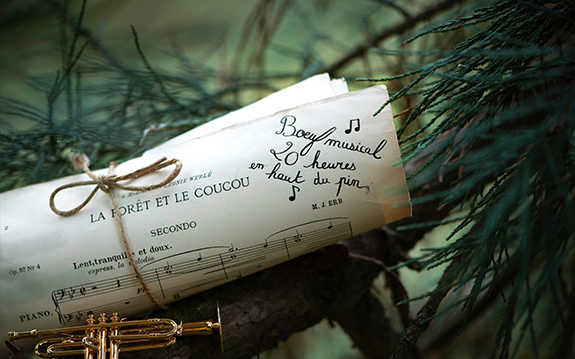 Boeuf musical
20 heures
en haut du pin
ANTONIE WERLÉ
LA FORÊT ET LE COUCOU
M. J. ERB
SECONDO
Op. 57 Nº 4
Lent, tranquille et doux.
espress. la melodia
PIANO.